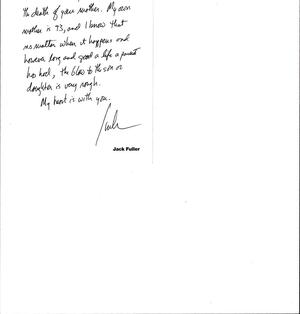 the death of your mother. My own
mother is 93, and I know that
no matter when it happens and
however long and good a life a parent
has had, the blow to the son or
daughter is very rough.
My heart is with you.
Jack
Jack Fuller